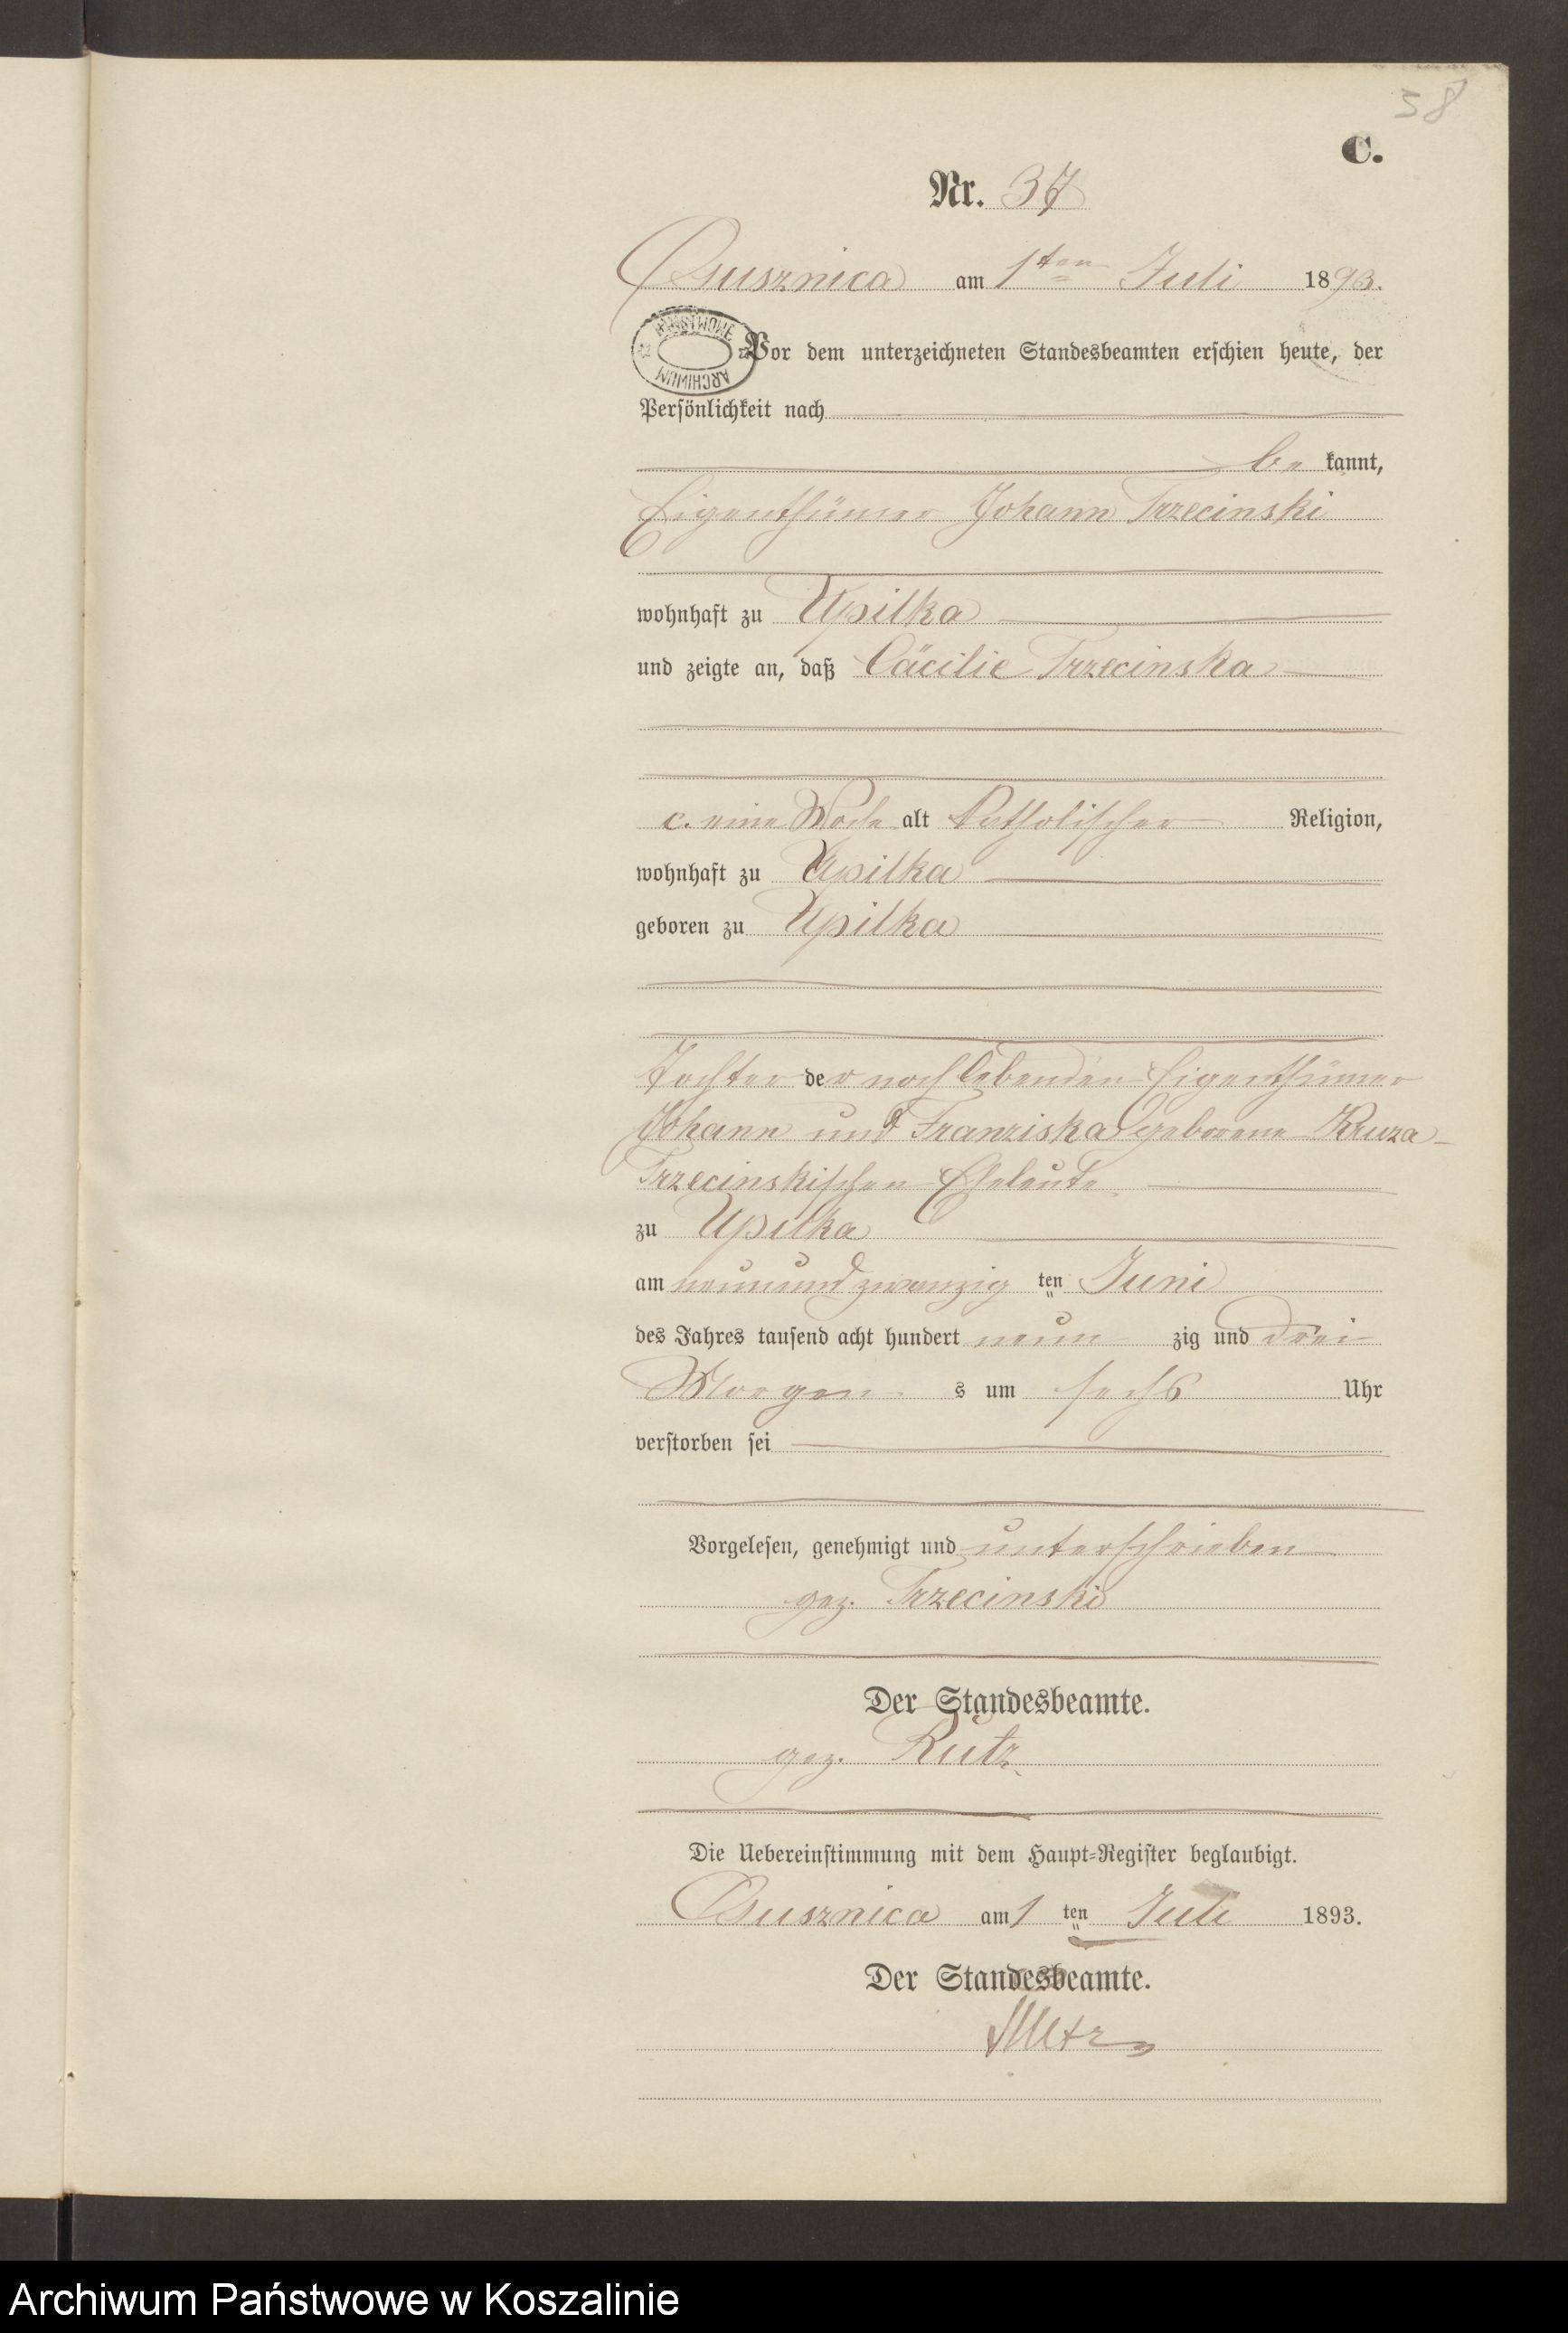 38
C.
Nr. 37
Osusznica am 1ten Juli 1893.
ARCHIWUM PAŃSTWOWE
Vor dem unterzeichneten Standesbeamten erschien heute, der
Persönlichkeit nach
be kannt,
Eigenthümer Johann Trzecinski
wohnhaft zu Upilka
und zeigte an, daß Cäcilie Trzecinska
c. eine Woche alt katholischer Religion,
wohnhaft zu Upilka
geboren zu Upilka
Tochter der noch lebenden Eigenthümer
Johann und Franziska geborene Kruza-
Trzecinskischen Eheleute
zu Upilka
am neunundzwanzig ten Juni
des Jahres tausend acht hundert neun zig und drei
Morgen s um sechs Uhr
verstorben sei
Vorgelesen, genehmigt und unterschrieben
gez. Trzecinski
Der Standesbeamte.
gez. Rutz.
Die Uebereinstimmung mit dem Haupt-Register beglaubigt.
Osusznica am 1 ten Juli 1893.
Der Standesbeamte.
Archiwum Państwowe w Koszalinie